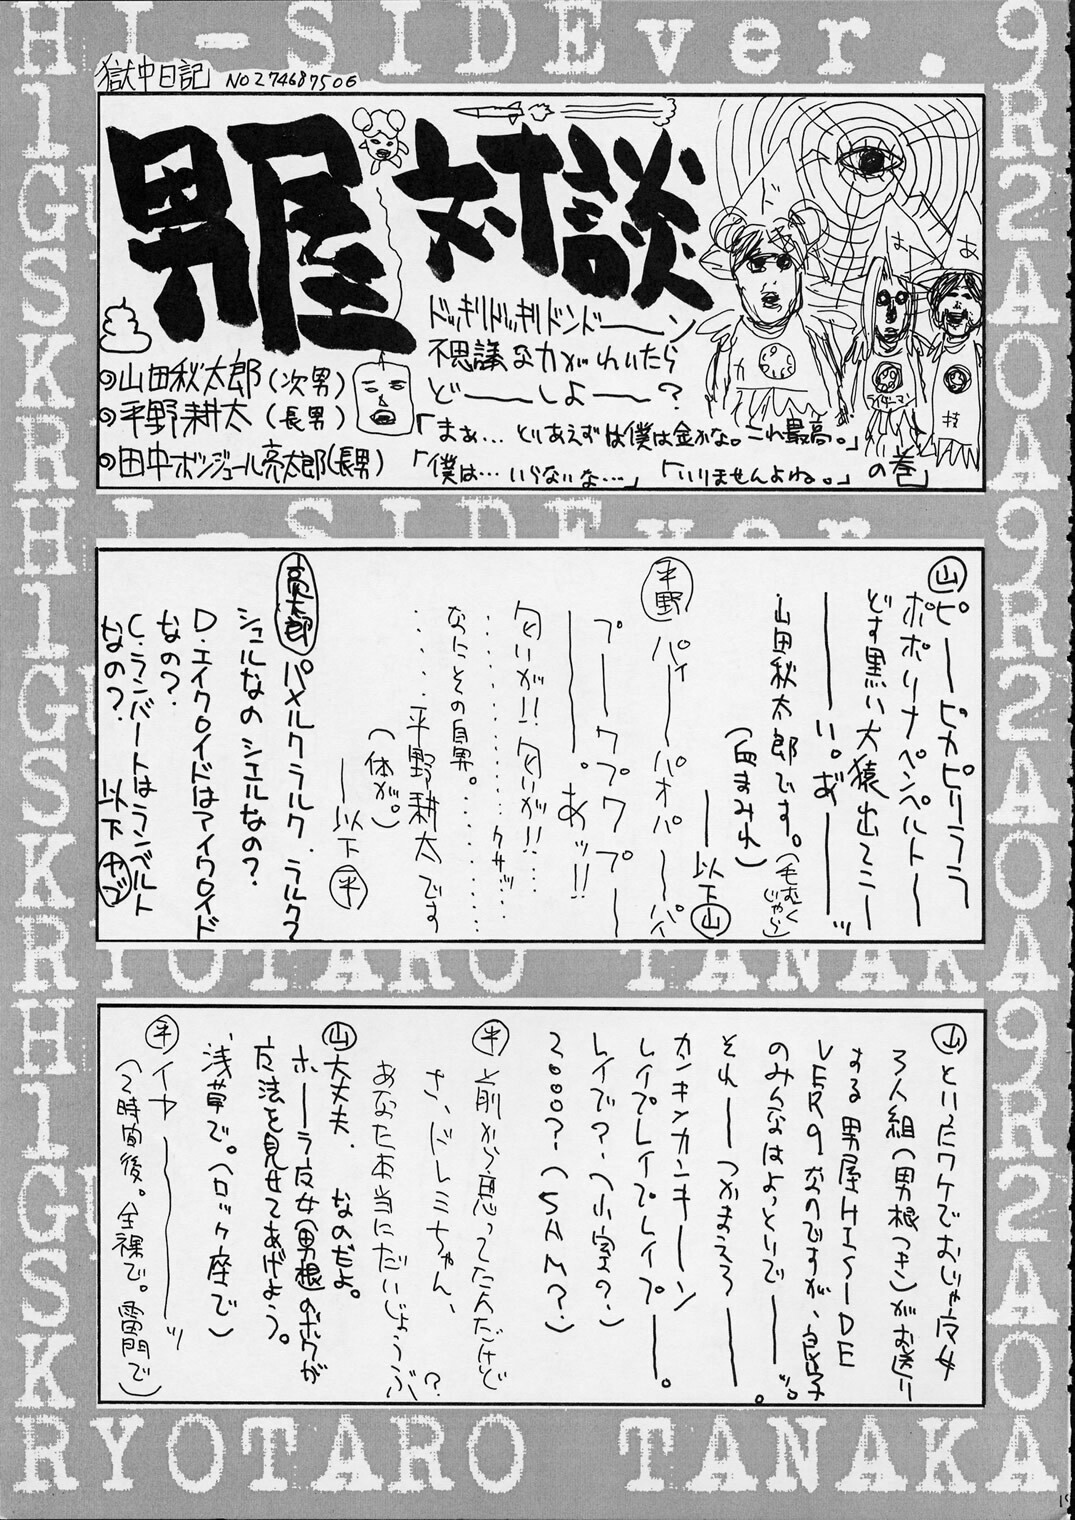 HI-SIDEver.9
獄中日記 NO274687506
男屋対談
ドッキリドッキリドンドーーン
不思議な力がわいたら
どーーしよーー?
山田秋太郎(次男)
平野耕太(長男)
田中ボンジュール亮太郎(長男)
「まぁ…とりあえずは僕は金かな。これ最高。」
「僕は…いらないな…」「いりませんよね。」の巻
HI-SIDEver.
山 ピーーピカピリララ
ポポリナペンペルトーー
どす黒い大猿出てこー
ーーーい。あ゛ーーーッ
山田秋太郎です。(毛むくじゃら)
(血まみれ)
ーー以下山
平野 パイーーパオパーーパ
プーークプワプーー
ーーーー。あッ!!
匂いが!!匂いが!!…
……クサッ……
なにその自男。……
……平野耕太です
(体が。)
ーー以下平
亮太郎 パメルクラルク、ラルク?
シュルなのシエルなの?
D・エイクロイドはアイクロイド
なの?
C・ランバートはランベルト
なの? 以下ヤブ
RYOTARO TANAKA
山 といったワケでおじゃ魔女
3人組(男根つき)がお送り
する男屋HISIDE
VER9なのですが、良い子
のみんなはよっといでーーッ。
それーーつかまろろーー。
カンキンカンキーーン
レイプレイプレイプーー。
レイプで?(小室の?)
2000?(SAM?)
平 前から思ってたんだけど
さ、ドレミちゃん、
あなた本当にだいじょうぶ?
山 大丈夫、なのだよ。
ホーーラ魔女(男根のボクが
魔法を見せてあげよう。
浅草で。(ロック座で)
平 イヤーーーーッ
(2時間後。全裸で。雷門で)
RYOTARO TANAKA